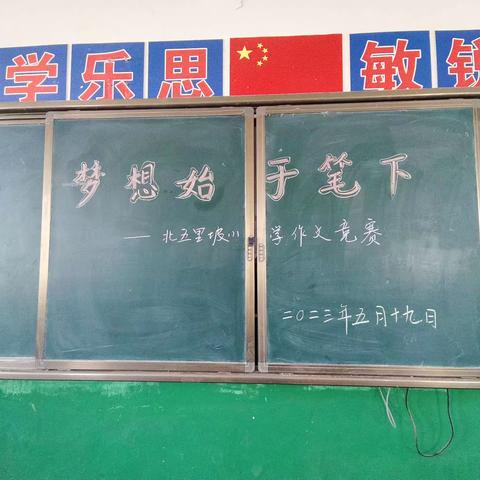 学乐思敏锐
梦想始于笔下
——北五里坡小学作文竞赛
二〇二三年五月十九日